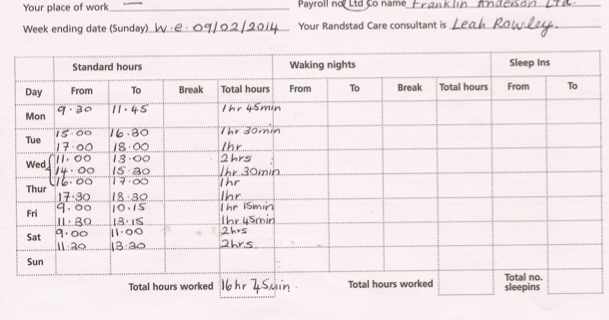 Your place of work —
Payroll no( Ltd Co name Franklin Anderson Ltd.
Week ending date (Sunday) W.e. 09/02/2014 Your Randstad Care consultant is Leah Rowley.
Standard hours Waking nights Sleep Ins
Day From To Break Total hours From To Break Total hours From To
Mon 9.30 11.45 1hr 45min
Tue 15.00 16.30 1hr 30min
17.00 18.00 1hr
Wed 11.00 13.00 2hrs
14.00 15.30 1hr.30min
16.00 17.00 1hr
Thur 17.30 18.30 1hr
Fri 9.00 10.15 1hr 15min
11.30 13.15 1hr 45min
Sat 9.00 11.00 2hrs
11.30 13.30 2hrs
Sun
Total hours worked 16hr 45min. Total hours worked Total no. sleepins